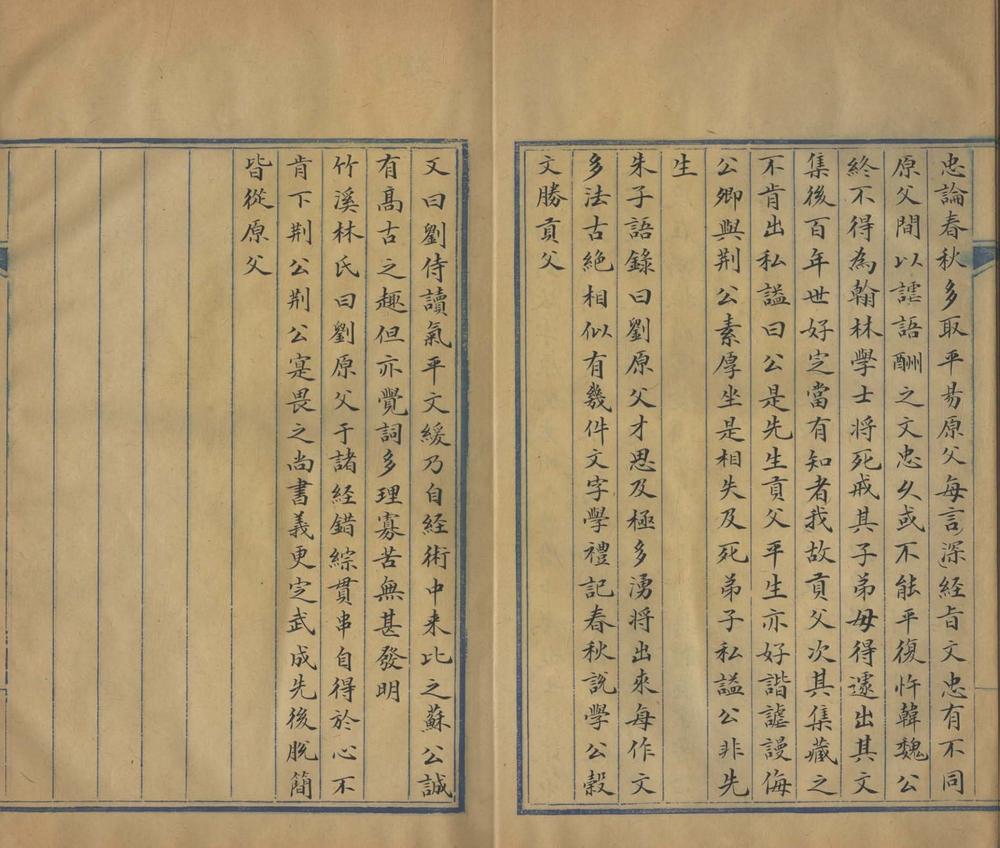 忠論春秋多取平昜原父毎言深経㫖文忠有不同
原父間以謔語酬之文忠久或不能平復忤韓魏公
終不得為翰林學士将死戒其子弟毋得遽出其文
集後百年世好定當有知者我故貢父次其集藏之
不肯出私謚曰公是先生貢父平生亦好諧謔謾侮
公卿與荆公素厚坐是相失及死弟子私謚公非先
生
朱子語錄曰劉原父才思及極多湧将出來每作文
多法古絶相似有幾件文字學禮記春秋說學公穀
文勝貢父
又曰劉侍讀氣平文緩乃自経術中来比之蘇公誠
有髙古之趣但亦覺詞多理寡苦無甚發明
竹溪林氏曰劉原父于諸経錯綜貫串自得於心不
肯下荆公荆公寔畏之尚書義更定武成先後脫簡
皆從原父